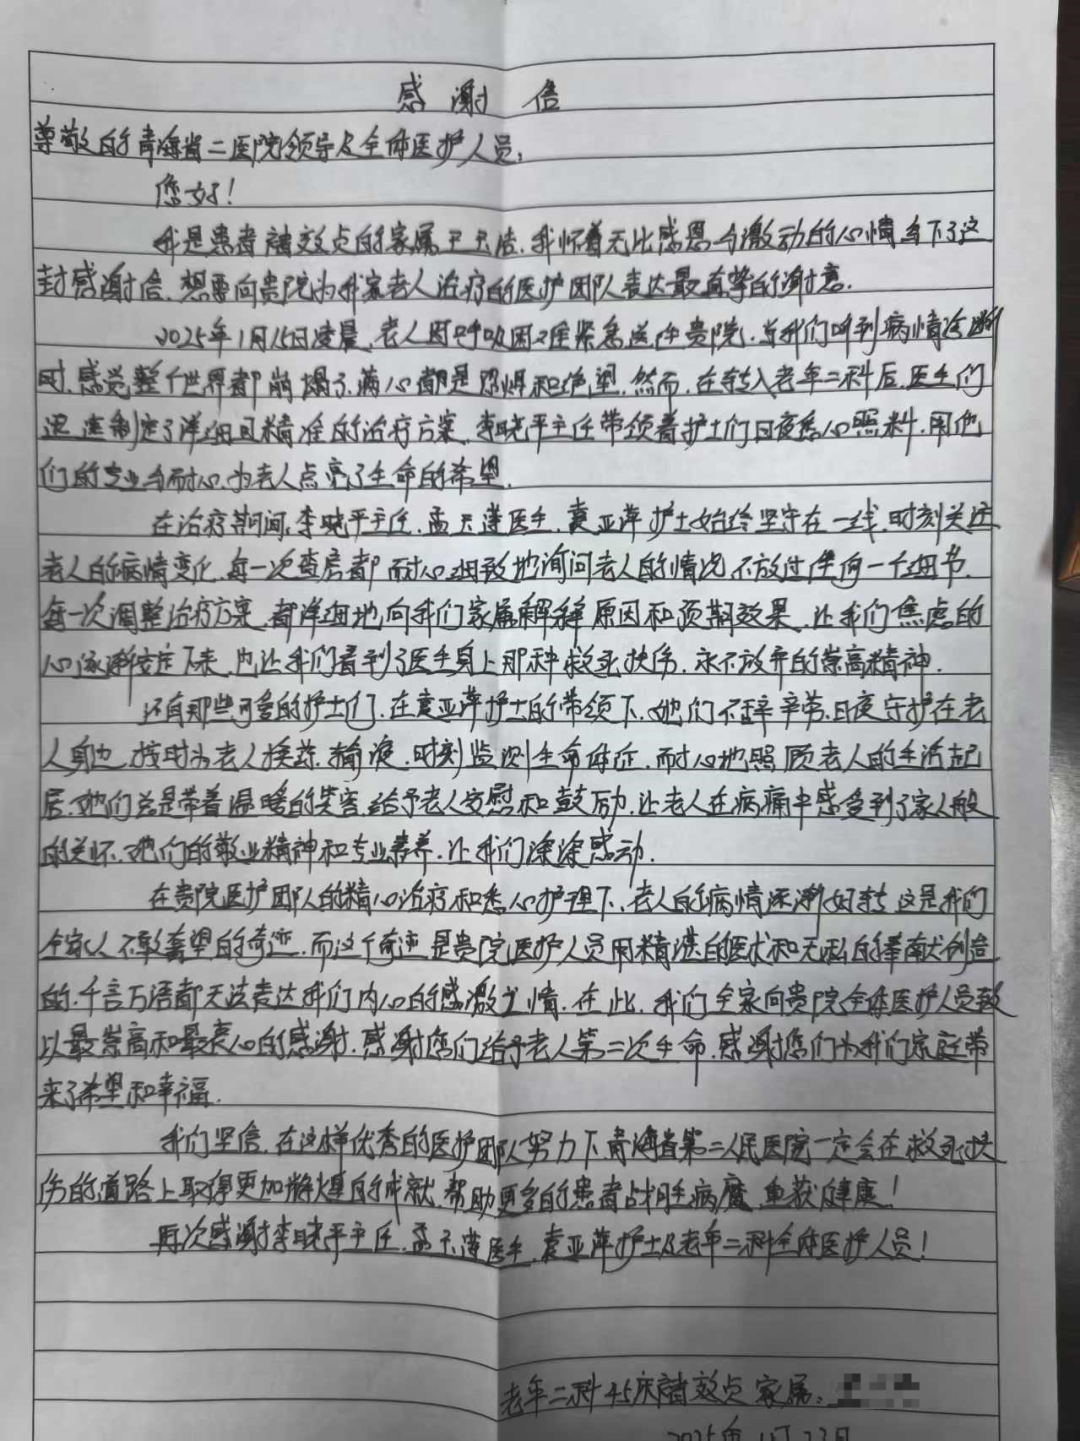 感谢信
尊敬的青海省二医院领导及全体医护人员:
您好!
我是患者褚效贞的家属,我怀着无比感恩与激动的心情写下了这
封感谢信,想要向贵院为我家老人治疗的医护团队表达最真挚的谢意.
2025年1月15日凌晨,老人因呼吸困难紧急送往贵院,当我们听到病情诊断
时,感觉整个世界都崩塌了,满心都是恐惧和绝望,然而,在转入老年二科后,医生们
迅速制定了详细且精准的治疗方案,李晓平主任带领着护士们日夜悉心照料,用他
们的专业与耐心,为老人点亮了生命的希望.
在治疗期间,李晓平主任,孟天莲医生,袁亚萍护士始终坚守在一线,时刻关注
老人的病情变化,每一次查房都耐心细致地询问老人的情况,不放过任何一个细节,
每一次调整治疗方案,都详细地向我们家属解释原因和预期效果,让我们焦虑的
心逐渐安定下来,也让我们看到了医生身上那种救死扶伤,永不放弃的崇高精神.
还有那些可爱的护士们,在袁亚萍护士的带领下,她们不辞辛劳,日夜守护在老
人身边,按时为老人换药,输液,时刻监测生命体征,耐心地照顾老人的生活起
居,她们总是带着温暖的笑容,给予老人安慰和鼓励,让老人在病痛中感受到了家人般
的关怀,她们的敬业精神和专业素养,让我们深深感动.
在贵院医护团队的精心治疗和悉心护理下,老人的病情逐渐好转,这是我们
全家人不敢奢望的奇迹,而这个奇迹,是贵院医护人员用精湛的医术和无私的奉献创造
的,千言万语都无法表达我们内心的感激之情,在此,我们全家向贵院全体医护人员致
以最崇高和最衷心的感谢,感谢您们给予老人第二次生命,感谢您们为我们家庭带
来了希望和幸福.
我们坚信,在这样优秀的医护团队努力下,青海省第二人民医院一定会在救死扶
伤的道路上取得更加辉煌的成就,帮助更多的患者战胜病魔,重获健康!
再次感谢李晓平主任,孟天莲医生,袁亚萍护士及老年二科全体医护人员!
老年二科45床褚效贞家属:
2025年1月23日